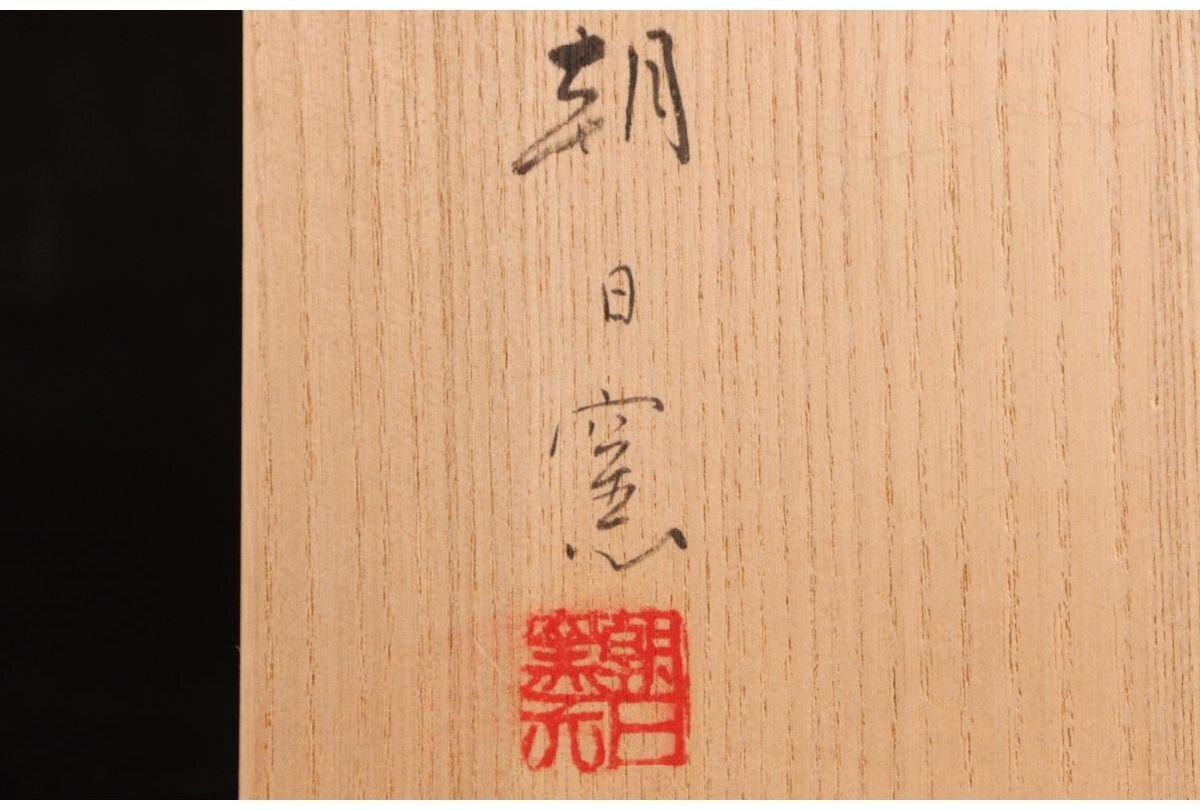 朝日窯
朝日
窯元